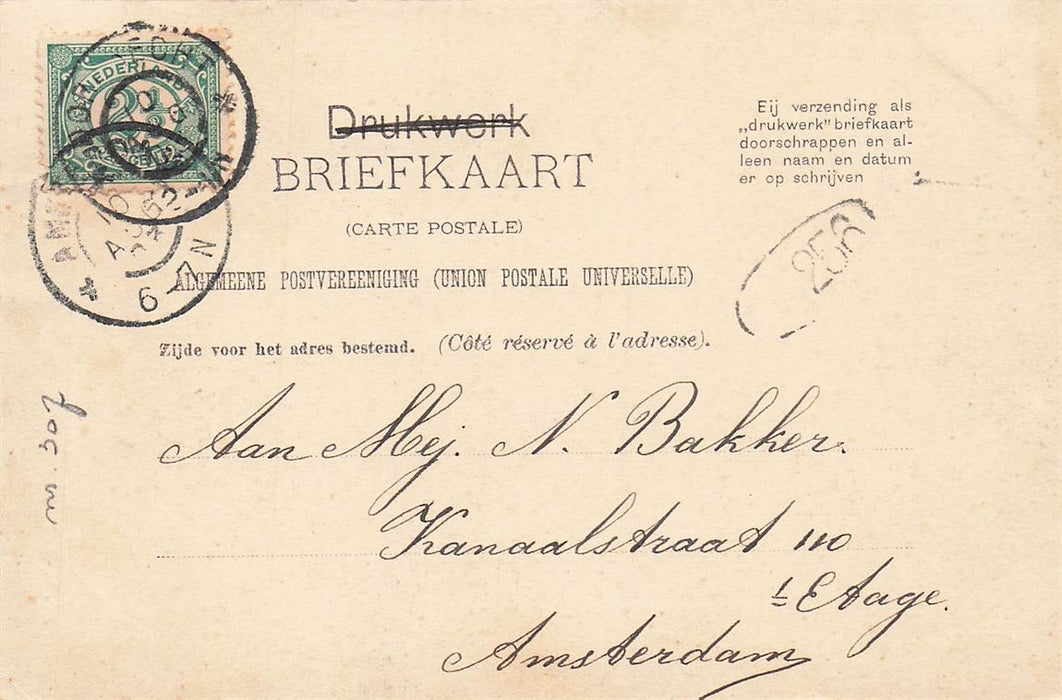 NEDERLAND
2½
Drukwerk
BRIEFKAART
(CARTE POSTALE)
ALGEMEENE POSTVEREENIGING (UNION POSTALE UNIVERSELLE)
Zijde voor het adres bestemd. (Côté réservé à l'adresse).
Bij verzending als
„drukwerk" briefkaart
doorschrappen en al-
leen naam en datum
er op schrijven
256
Aan Mej. N. Bakker.
Kanaalstraat 110
1s Etage.
Amsterdam
nr. 307